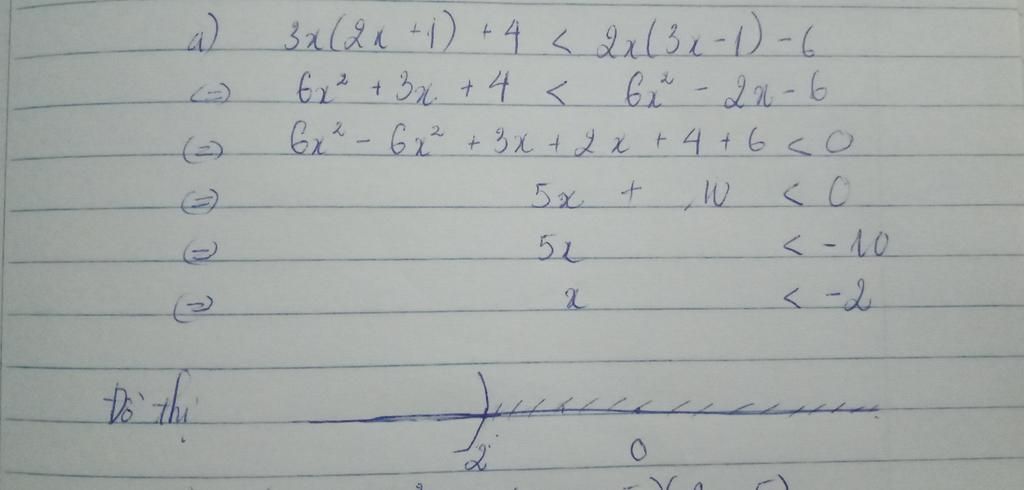 a) 3x(2x+1) + 4 < 2x(3x-1) - 6
(=) 6x² + 3x + 4 < 6x² - 2x - 6
(=) 6x² - 6x² + 3x + 2x + 4 + 6 < 0
(=) 5x + 10 < 0
(=) 5x < -10
(=) x < -2
Đồ thị
-2 0